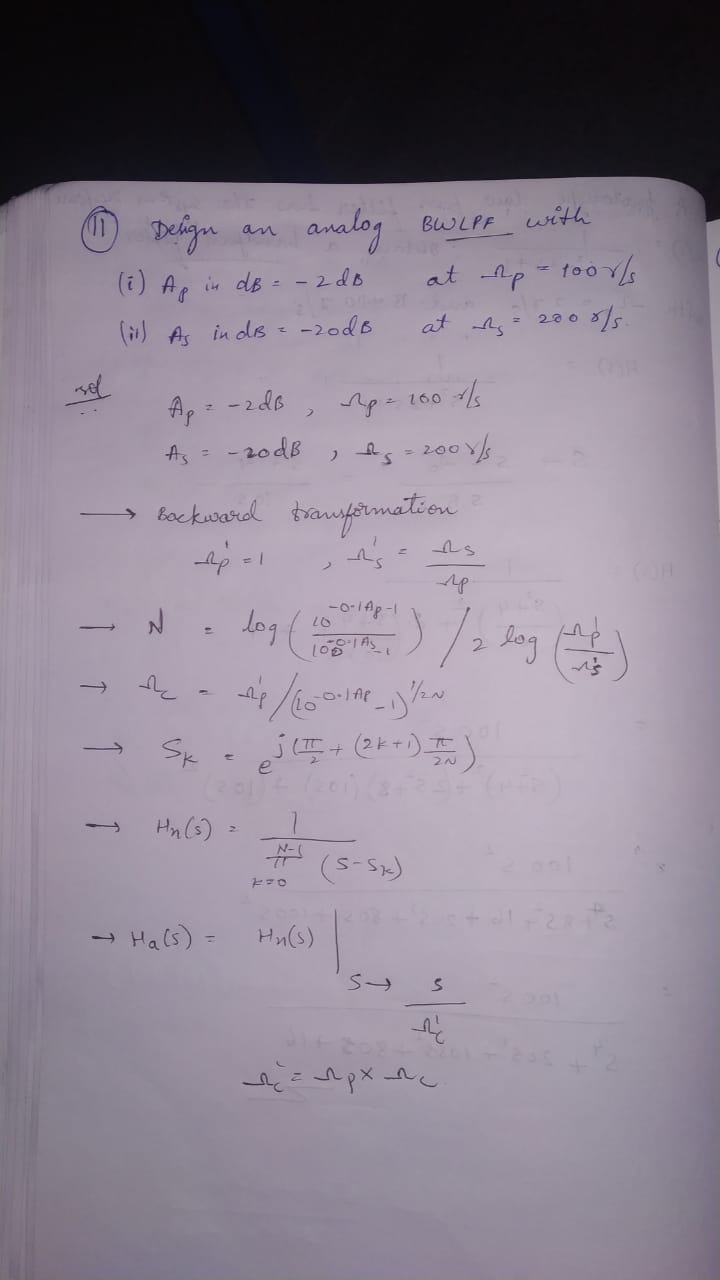 (11) Design an analog BWLPF with
(i) Ap in dB = -2dB at Ωp = 100 r/s
(ii) As in dB = -20dB at Ωs = 200 r/s.
sol
Ap = -2dB , Ωp = 100 r/s
As = -20dB , Ωs = 200 r/s
→ Backward transformation
Ωp' = 1 , Ωs' = Ωs / Ωp
→ N = log ( 10^(-0.1Ap-1) / 10^(-0.1As-1) ) / 2 log ( Ωp' / Ωs' )
→ Ωc = Ωp' / (10^(-0.1Ap) - 1)^(1/2N)
→ Sk = e^(j(π/2 + (2k+1) π/2N))
→ Hn(s) = 1 / π_(k=0)^(N-1) (s-sk)
→ Ha(s) = Hn(s) |
s → s / Ωc'
Ωc' = Ωp × Ωc